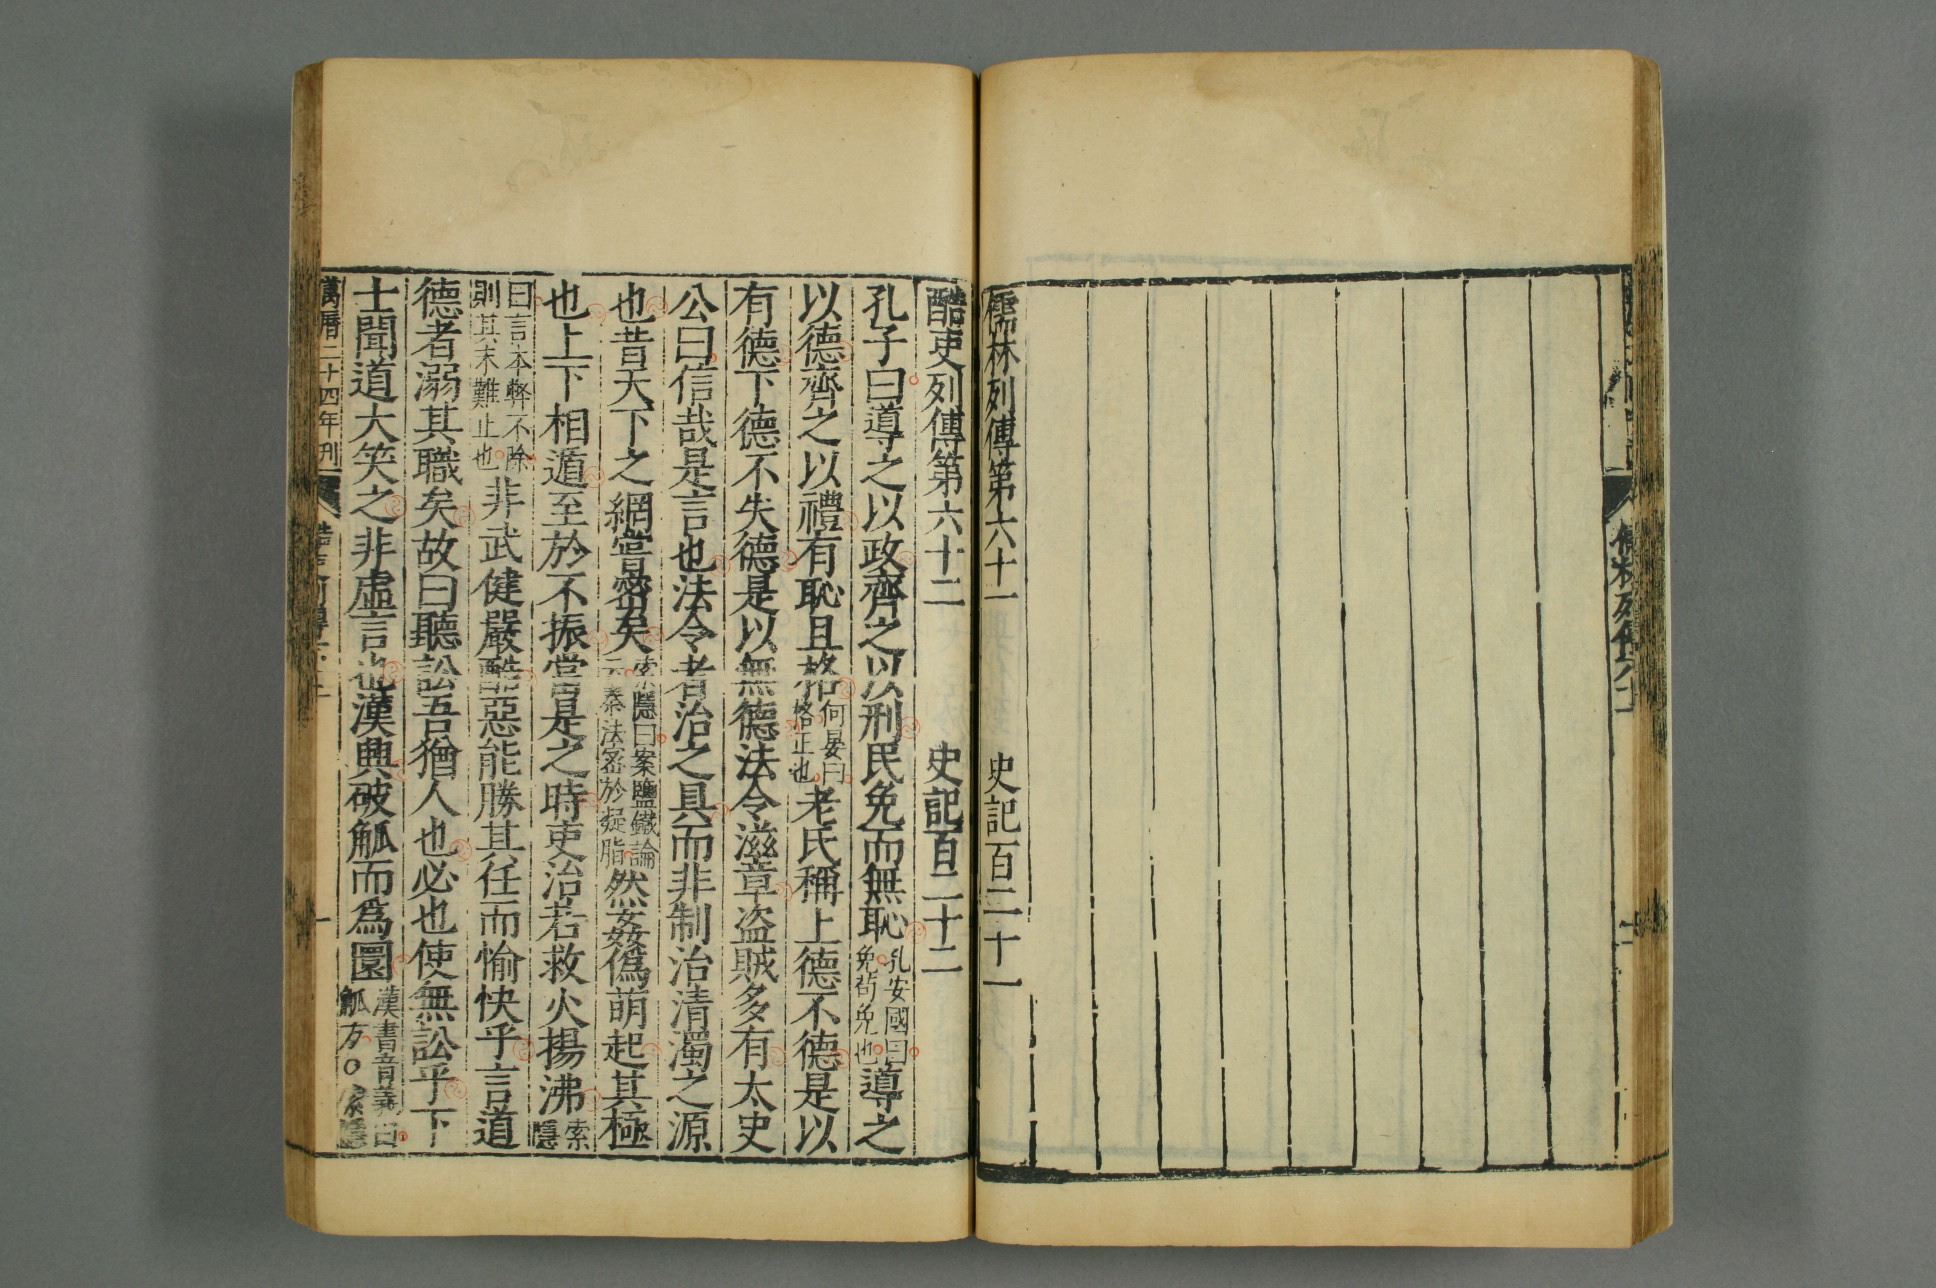 儒林列傳第六十一 史記百二十一
酷吏列傳第六十二 史記百二十二
孔子曰導之以政齊之以刑民免而無恥孔安國曰免苟免也導之
以德齊之以禮有恥且格何晏曰格正也老氏稱上德不德是以
有德下德不失德是以無德法令滋章盗賊多有太史
公曰信哉是言也法令者治之具而非制治清濁之源
也昔天下之網嘗密矣索隱曰案鹽鐵論云秦法密於凝脂然姦偽萌起其極
也上下相遁至於不振當是之時吏治若救火揚沸索隱
曰言本弊不除則其末難止也非武健嚴酷惡能勝其任而愉快乎言道
德者溺其職矣故曰聽訟吾猶人也必也使無訟乎下
士聞道大笑之非虛言也漢興破觚而爲圜漢書音義曰觚方○索隱
萬曆二十四年刊 一